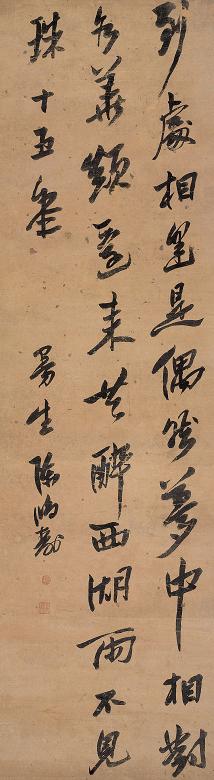 到處相逢是偶然夢中相對
各華顛還來共醉西湖雨不見
跳珠十五年
曼生陳鴻壽